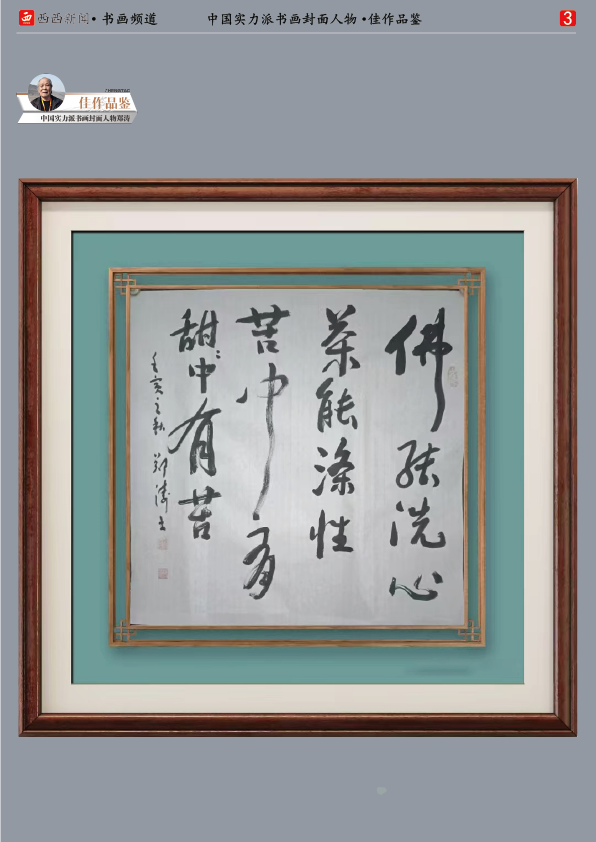 西 西西新闻•书画频道
中国实力派书画封面人物•佳作品鉴
3
佳作品鉴
中国实力派书画封面人物郑涛
佛能洗心
茶能涤性
苦中有
甜〻中有苦
壬寅之秋 郑涛书